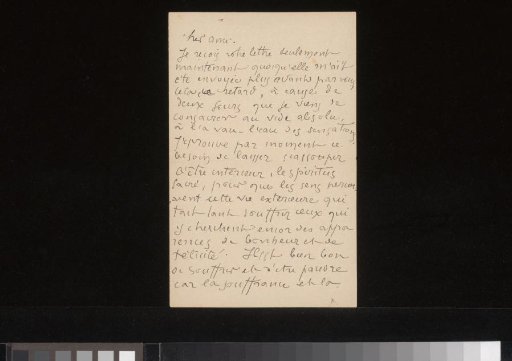 cher ami.
Je reçois votre lettre seulement
maintenant quoiqu'elle m'ait
été envoyée plus avant par vous
retard, à cause de
deux jours que je viens de
consacrer au vide absolu,
à l'a vau l'eau des sensations
J'éprouve par moment ce
besoin de laisser s'assoupir
l'être intérieur, le spiritus
sacré, pour que les sens
vent cette vie extérieure qui
fait tant souffrir ceux qui
y cherchent encor des appa
rences de bonheur et de
félicité. Il est bien bon
de souffrir et d'être pauvre
car la souffrance et la